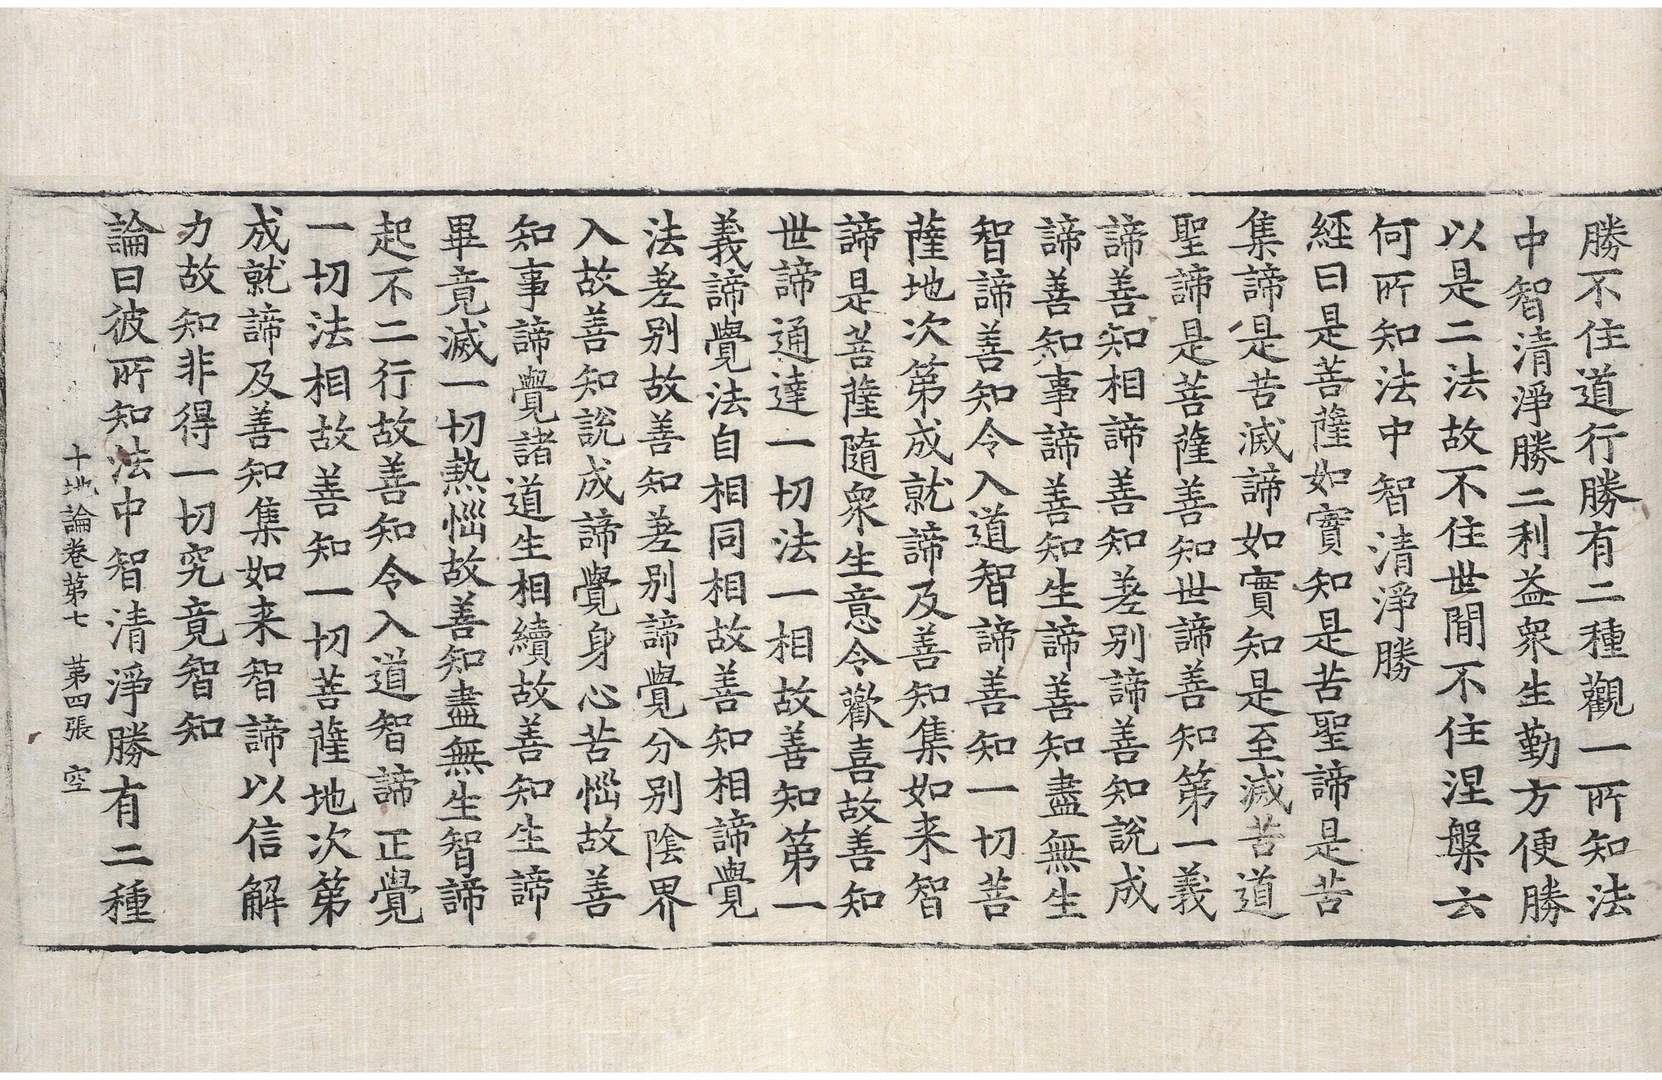 勝不住道行勝有二種觀一所知法
中智清淨勝二利益衆生勤方便勝
以是二法故不住世間不住涅槃云
何所知法中智清淨勝
經曰是菩薩如實知是苦聖諦是苦
集諦是苦滅諦如實知是至滅苦道
聖諦是菩薩善知世諦善知第一義
諦善知相諦善知差别諦善知說成
諦善知事諦善知生諦善知盡無生
智諦善知令入道智諦善知一切菩
薩地次第成就諦及善知集如来智
諦是菩薩隨衆生意令歡喜故善知
世諦通達一切法一相故善知第一
義諦覺法自相同相故善知相諦覺
法差别故善知差别諦覺分别陰界
入故善知說成諦覺身心苦惱故善
知事諦覺諸道生相續故善知生諦
畢竟滅一切熱惱故善知盡無生智諦
起不二行故善知令入道智諦正覺
一切法相故善知一切菩薩地次第
成就諦及善知集如来智諦以信解
力故知非得一切究竟智知
論曰彼所知法中智清淨勝有二種
十地論卷第七 第四張 空